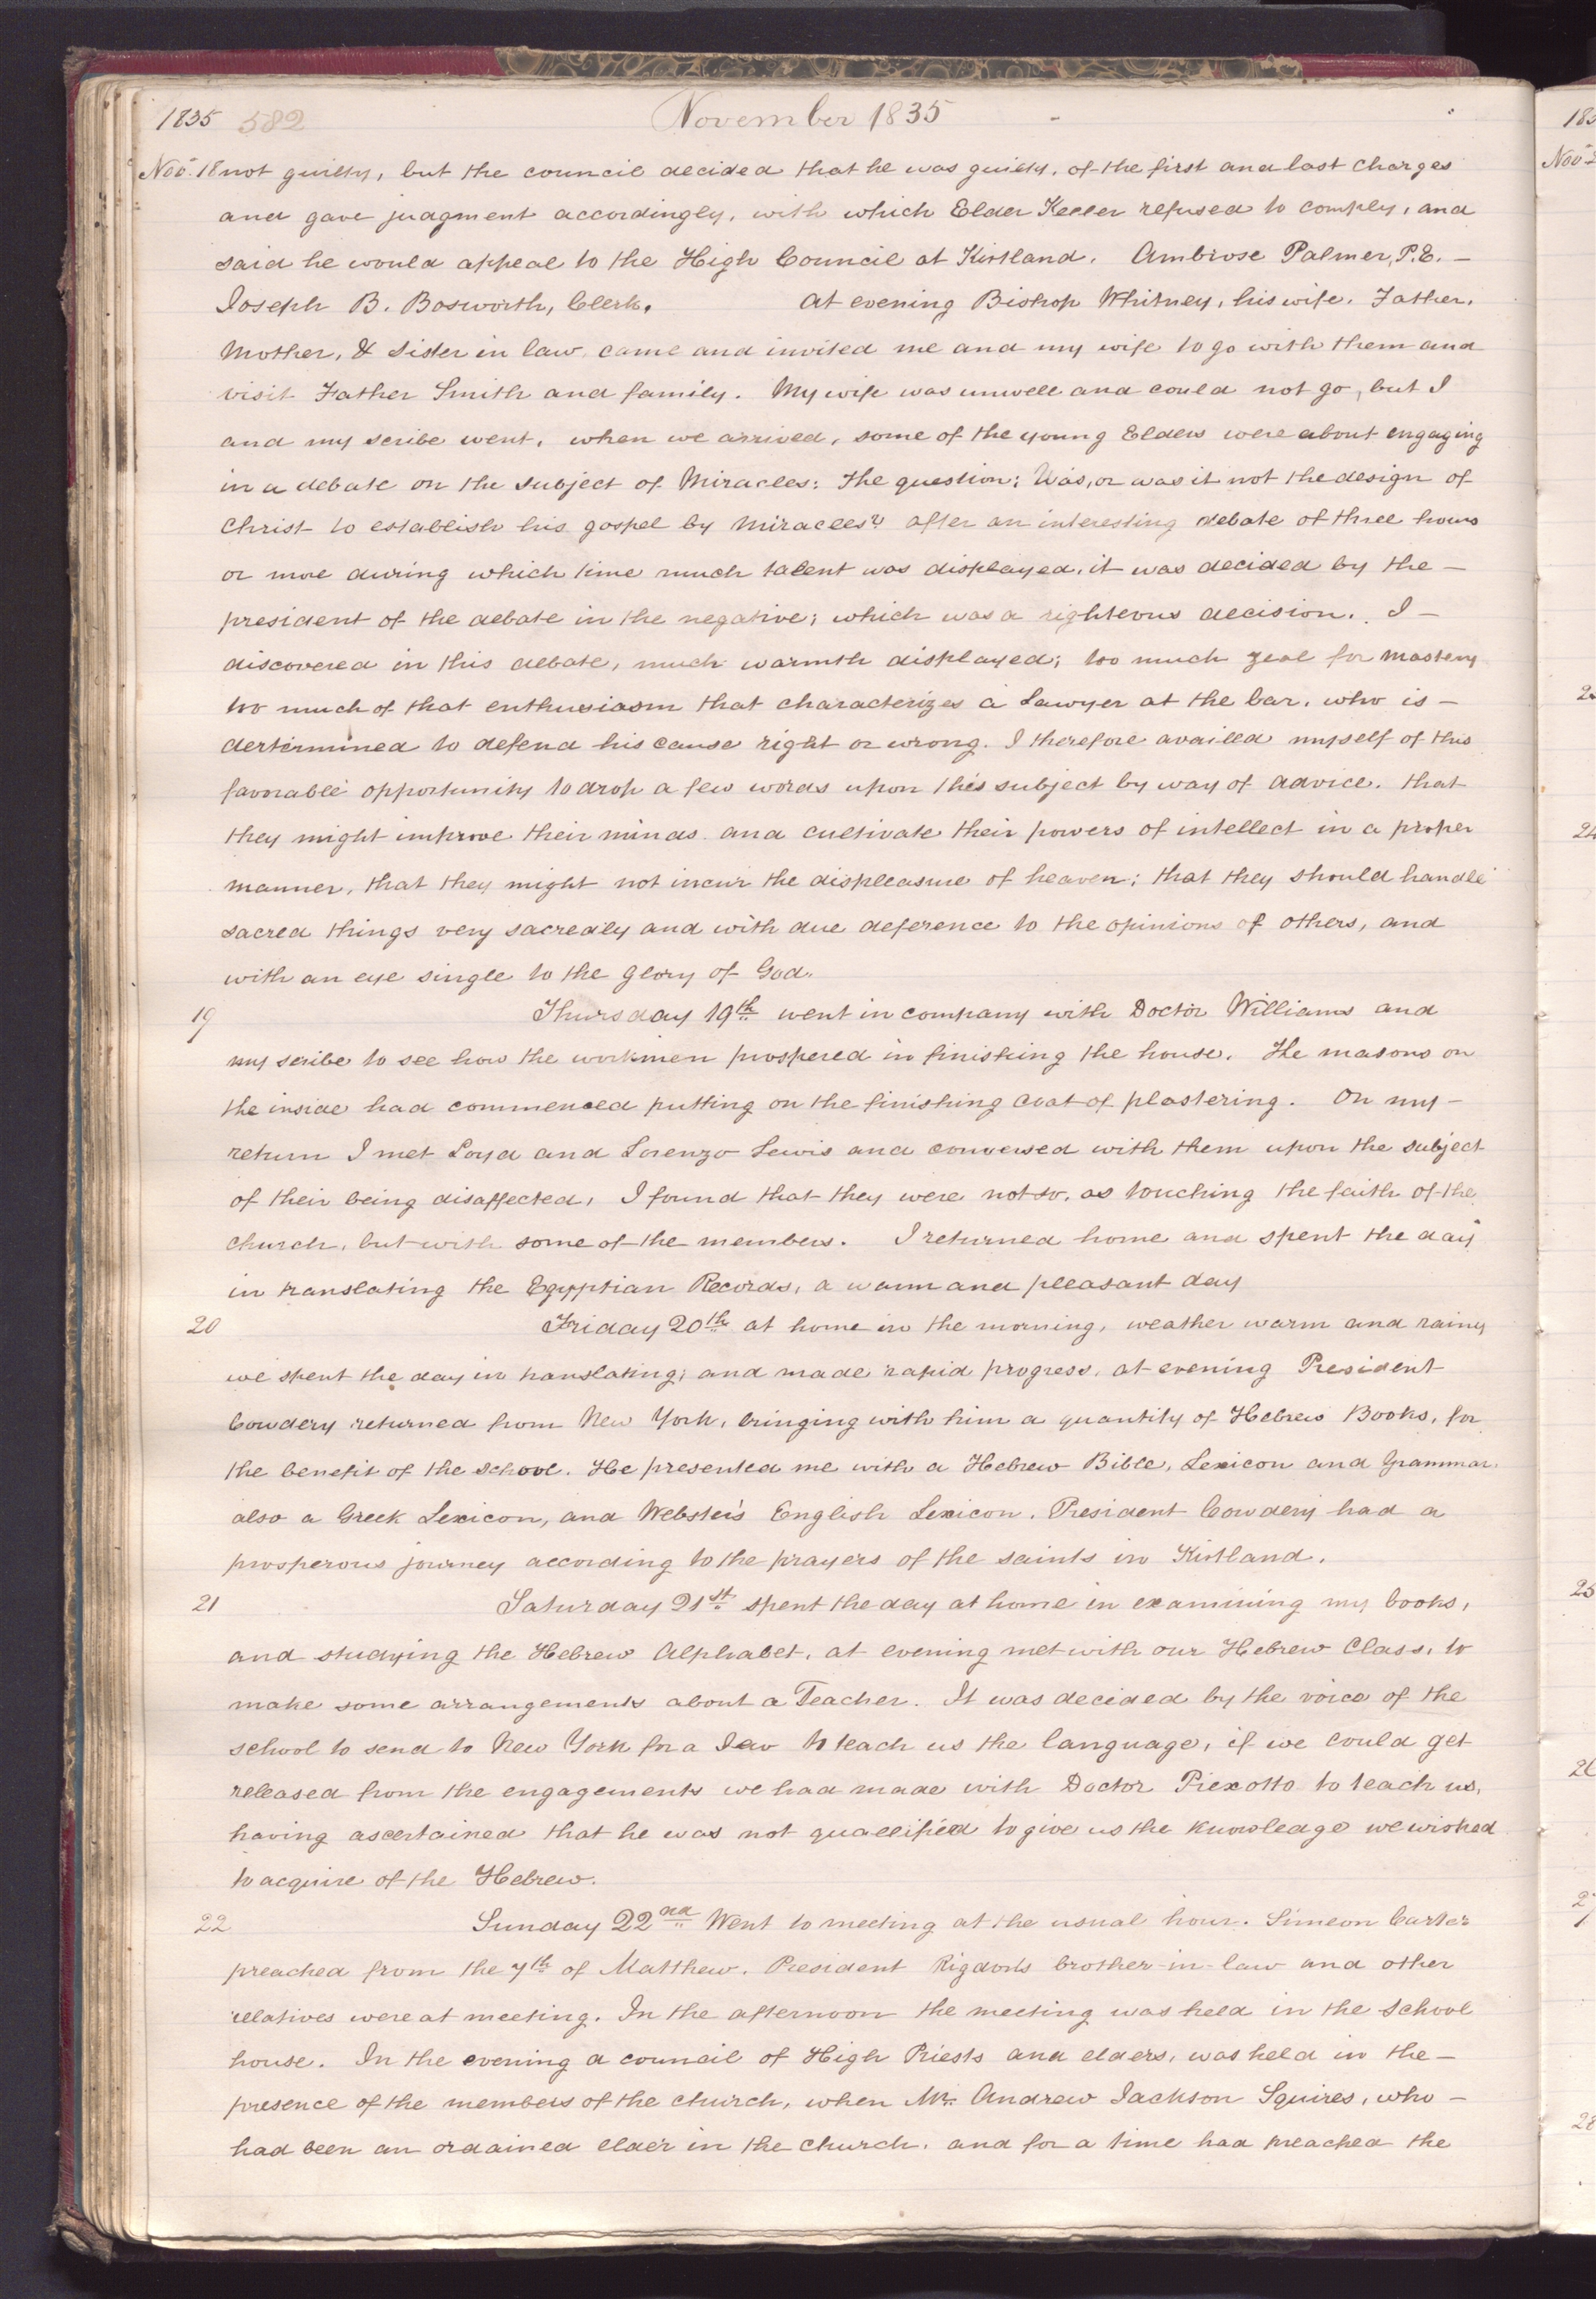 1835 582 November 1835
Nov. 18 not guilty, but the council decided that he was guilty, of the first and last charges
and gave judgment accordingly, with which Elder Keeler refused to comply, and
said he would appeal to the High Council at Kirtland. Ambrose Palmer, P.E. —
Joseph B. Bosworth, Clerk. At evening Bishop Whitney, his wife, Father,
Mother, & Sister in law, came and invited me and my wife to go with them and
visit Father Smith and family. My wife was unwell and could not go, but I
and my scribe went, when we arrived, some of the young Elders were about engaging
in a debate on the subject of Miracles: The question; Was, or was it not the design of
Christ to establish his gospel by Miracles? after an interesting debate of three hours
or more during which time much talent was displayed, it was decided by the —
president of the debate in the negative; which was a righteous decision. I —
discovered in this debate, much warmth displayed; too much zeal for mastery
too much of that enthusiasm that characterizes a Lawyer at the bar, who is —
dertermined to defend his cause right or wrong. I therefore availed myself of this
favorable opportunity to drop a few words upon this subject by way of advice, that
they might improve their minds and cultivate their powers of intellect in a proper
manner, that they might not incur the displeasure of heaven; that they should handle
sacred things very sacredly and with due deference to the opinions of others, and
with an eye single to the glory of God.
19 Thursday 19th went in company with Doctor Williams and
my scribe to see how the workmen prospered in finishing the house. The masons on
the inside had commenced putting on the finishing coat of plastering. On my —
return I met Loyd and Lorenzo Lewis and conversed with them upon the subject
of their being disaffected, I found that they were not so, as touching the faith of the
church, but with some of the members. I returned home and spent the day
in translating the Egyptian Records, a warm and pleasant day
20 Friday 20th at home in the morning, weather warm and rainy
we spent the day in translating; and made rapid progress, at evening President
Cowdery returned from New York, bringing with him a quantity of Hebrew Books, for
the benefit of the school. He presented me with a Hebrew Bible, Lexicon and Grammar,
also a Greek Lexicon, and Webster's English Lexicon. President Cowdery had a
prosperous journey according to the prayers of the saints in Kirtland.
21 Saturday 21st spent the day at home in examining my books,
and studying the Hebrew Alphabet, at evening met with our Hebrew Class, to
make some arrangements about a Teacher. It was decided by the voice of the
school to send to New York for a Jew to teach us the language, if we could get
released from the engagements we had made with Doctor Piexotto to teach us,
having ascertained that he was not quallified to give us the knowledge we wished
to acquire of the Hebrew.
22 Sunday 22nd Went to meeting at the usual hour. Simeon Carter
preached from the 7th of Matthew. President Rigdon's brother-in-law and other
relatives were at meeting. In the afternoon the meeting was held in the School
house. In the evening a council of High Priests and elders, was held in the —
presence of the members of the church, when Mr. Andrew Jackson Squires, who —
had been an ordained elder in the church, and for a time had preached the